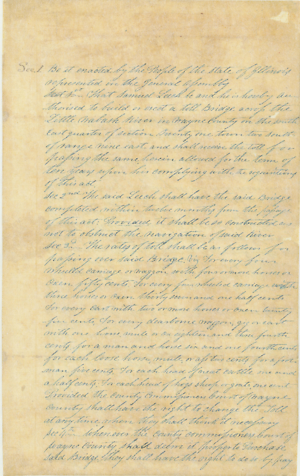 Sec 1 Be it enacted by the People of the State of Illinois
represented in the General Assembly
That Samuel Leech be and he is hereby au-
thorised to build a toll Bridge across the
Little Wabash River in Wayne County in the south
east quarter of section Twenty one town two South
of range nine east, and shall receive the toll for
passing the same herein allowed for the term of
upon his complying with the requisitions
of this act.
Sec 2nd The said Leech shall have the said Bridge
completed within twelve months from the passage
of this act. Provided it shall be so constructed as
not to obstruct the navigation of said River
Sec 3. The rates of toll shall be as follows for
passing over said Bridge, For every four
wheeled carriage or waggon with four or more horses or
oxen fifty cents For every four wheeled carriage with
three horses or oxen thirty seven and one half cents
For every cart with two or more horses or oxen twenty
five cents For every one horse waggon, gig or cart
with one horse
cents, for a man and horse
for each loose horse, mule, or ass two cents for a foot
man cents For each head of neat cattle one and
a half cents, For each head of hogs sheep or goats one cent
Provided the County Commissioners Court of Wayne
County shall have the right to change the toll
at any time when they shall think it necessary
Sec 4. Whenever the County commissioners court of
Wayne County shall deem it proper to purchase
said Bridge they shall have the right to do so by pay